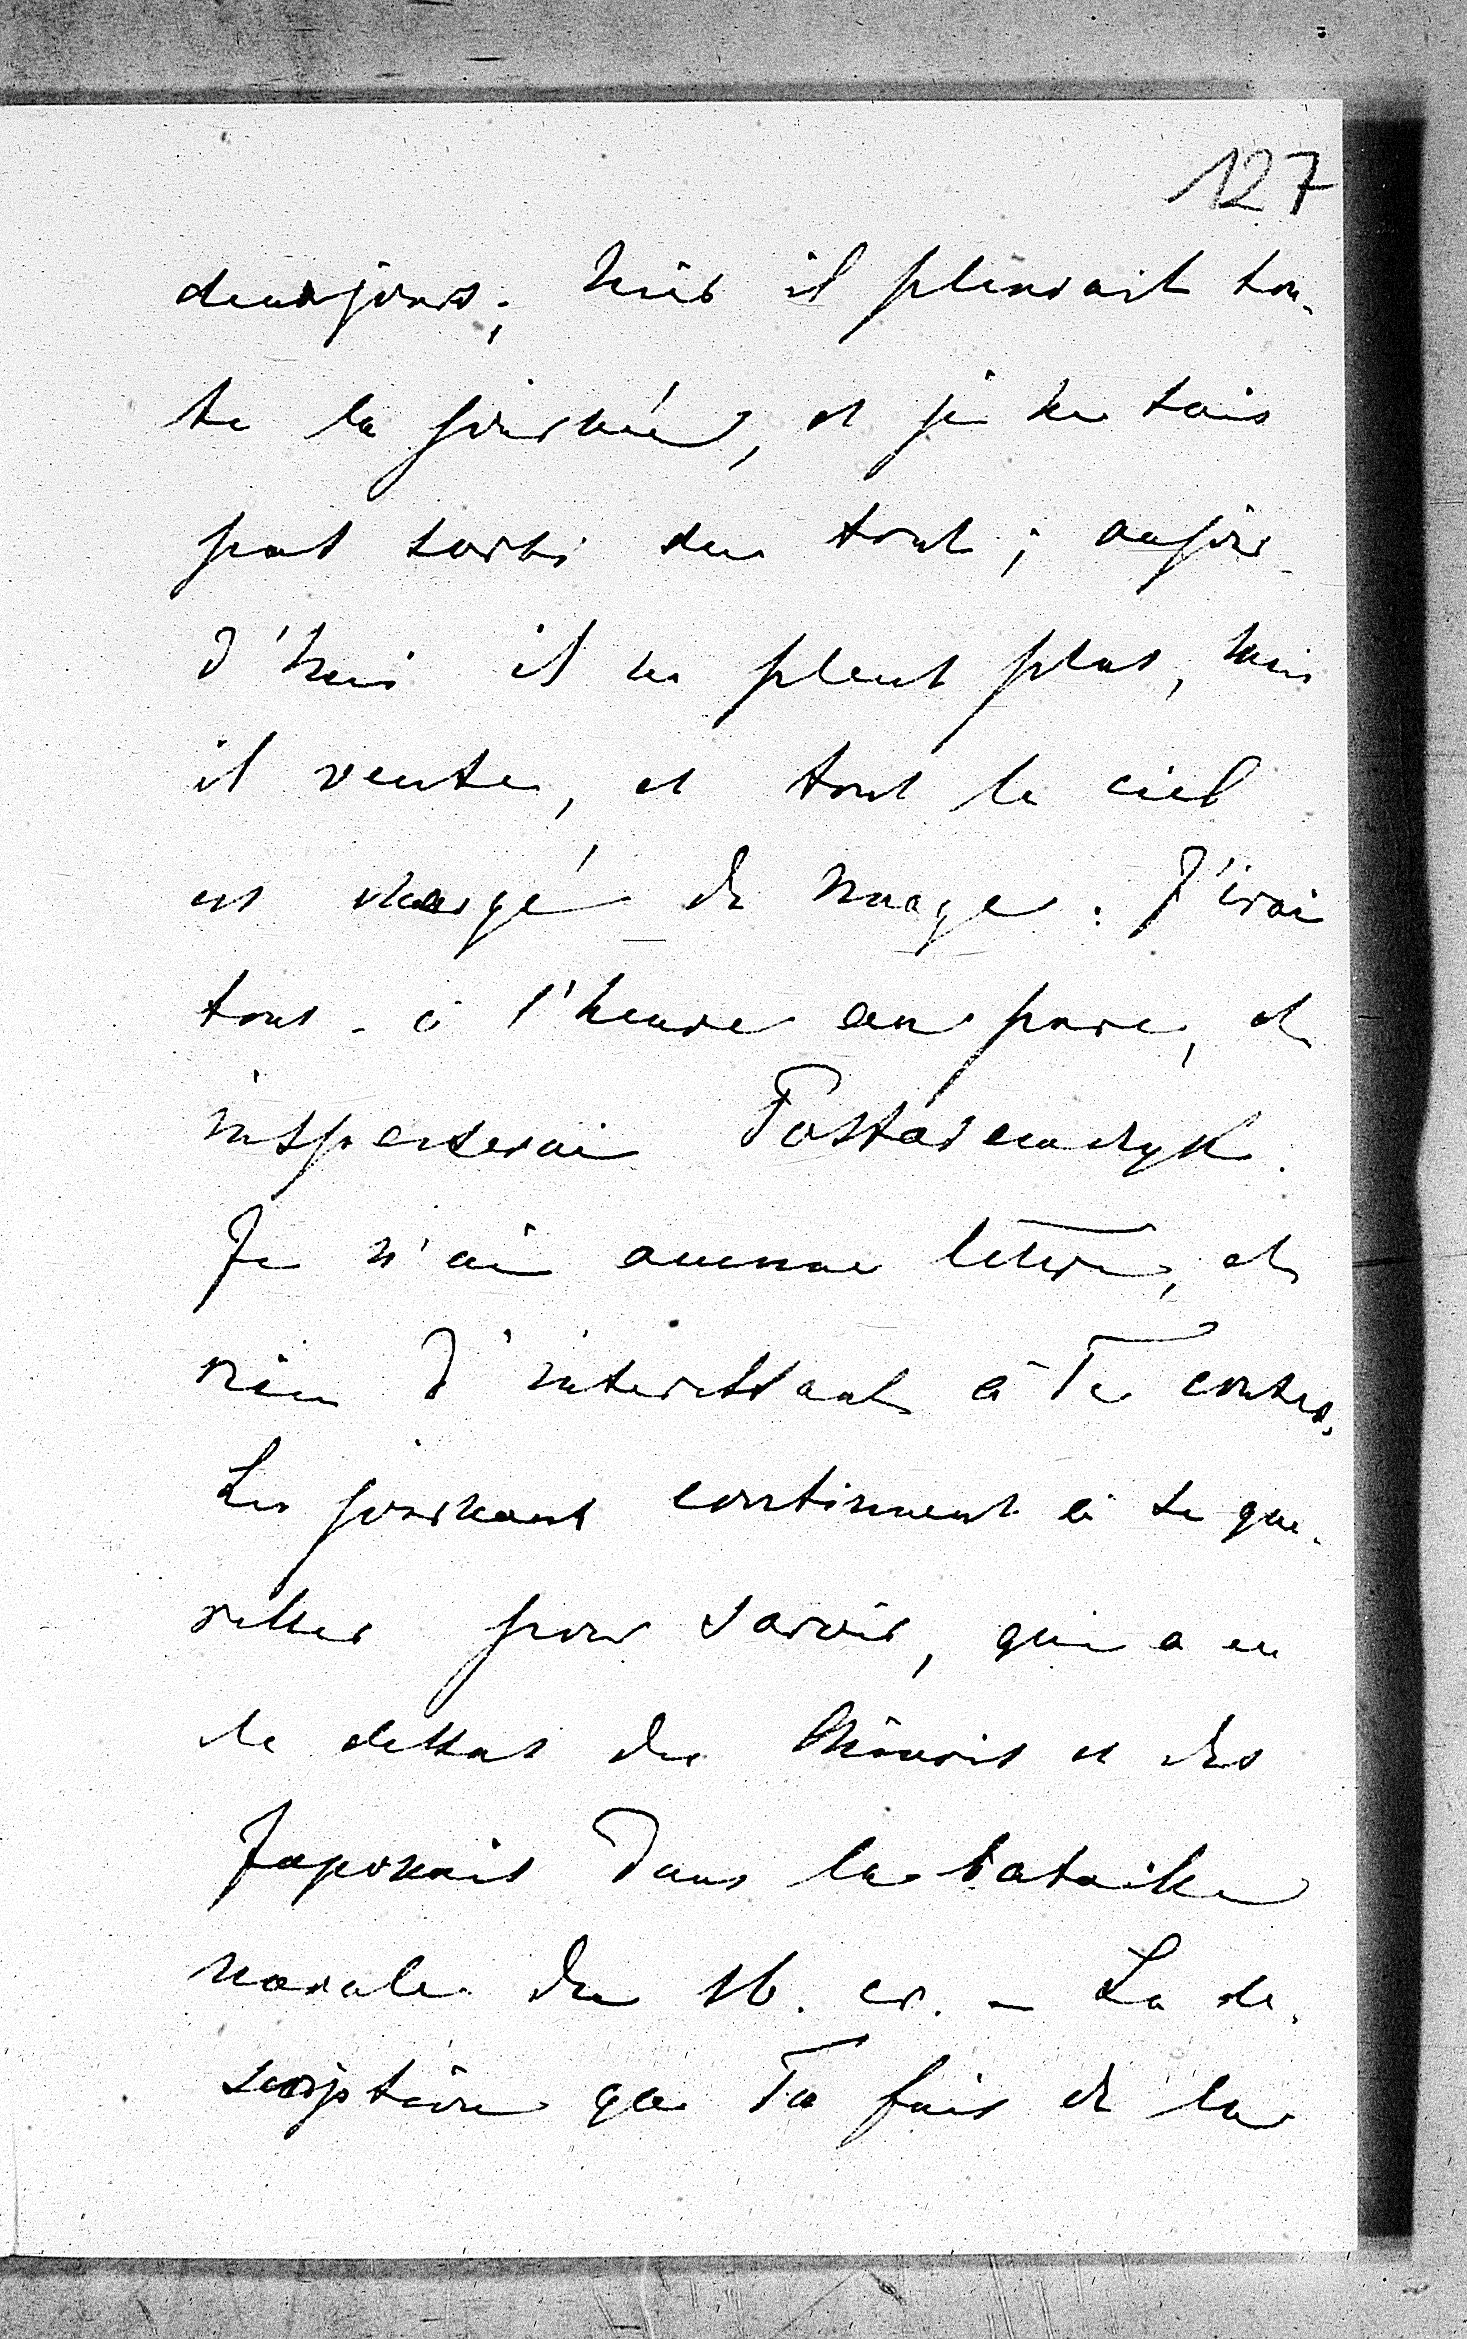 127
deux jours; hier il pleuvait tou-
te la journée, et je ne suis
pas sorti du tout; aujour-
d'hui il ne pleut plus, mais
il vente, et tout le ciel
est chargé de nuages. J'irai
tout-à l'heure au parc, et
inspecterai
Je n'ai aucune lettre, et
rien d'interessant à Te conter.
Les journaux continuent à se que-
reller pour savoir, qui a eu
le dessus des Chinois et des
Japonais dans la bataille
navale du 16. cr. – La de-
scription que Tu fais de la